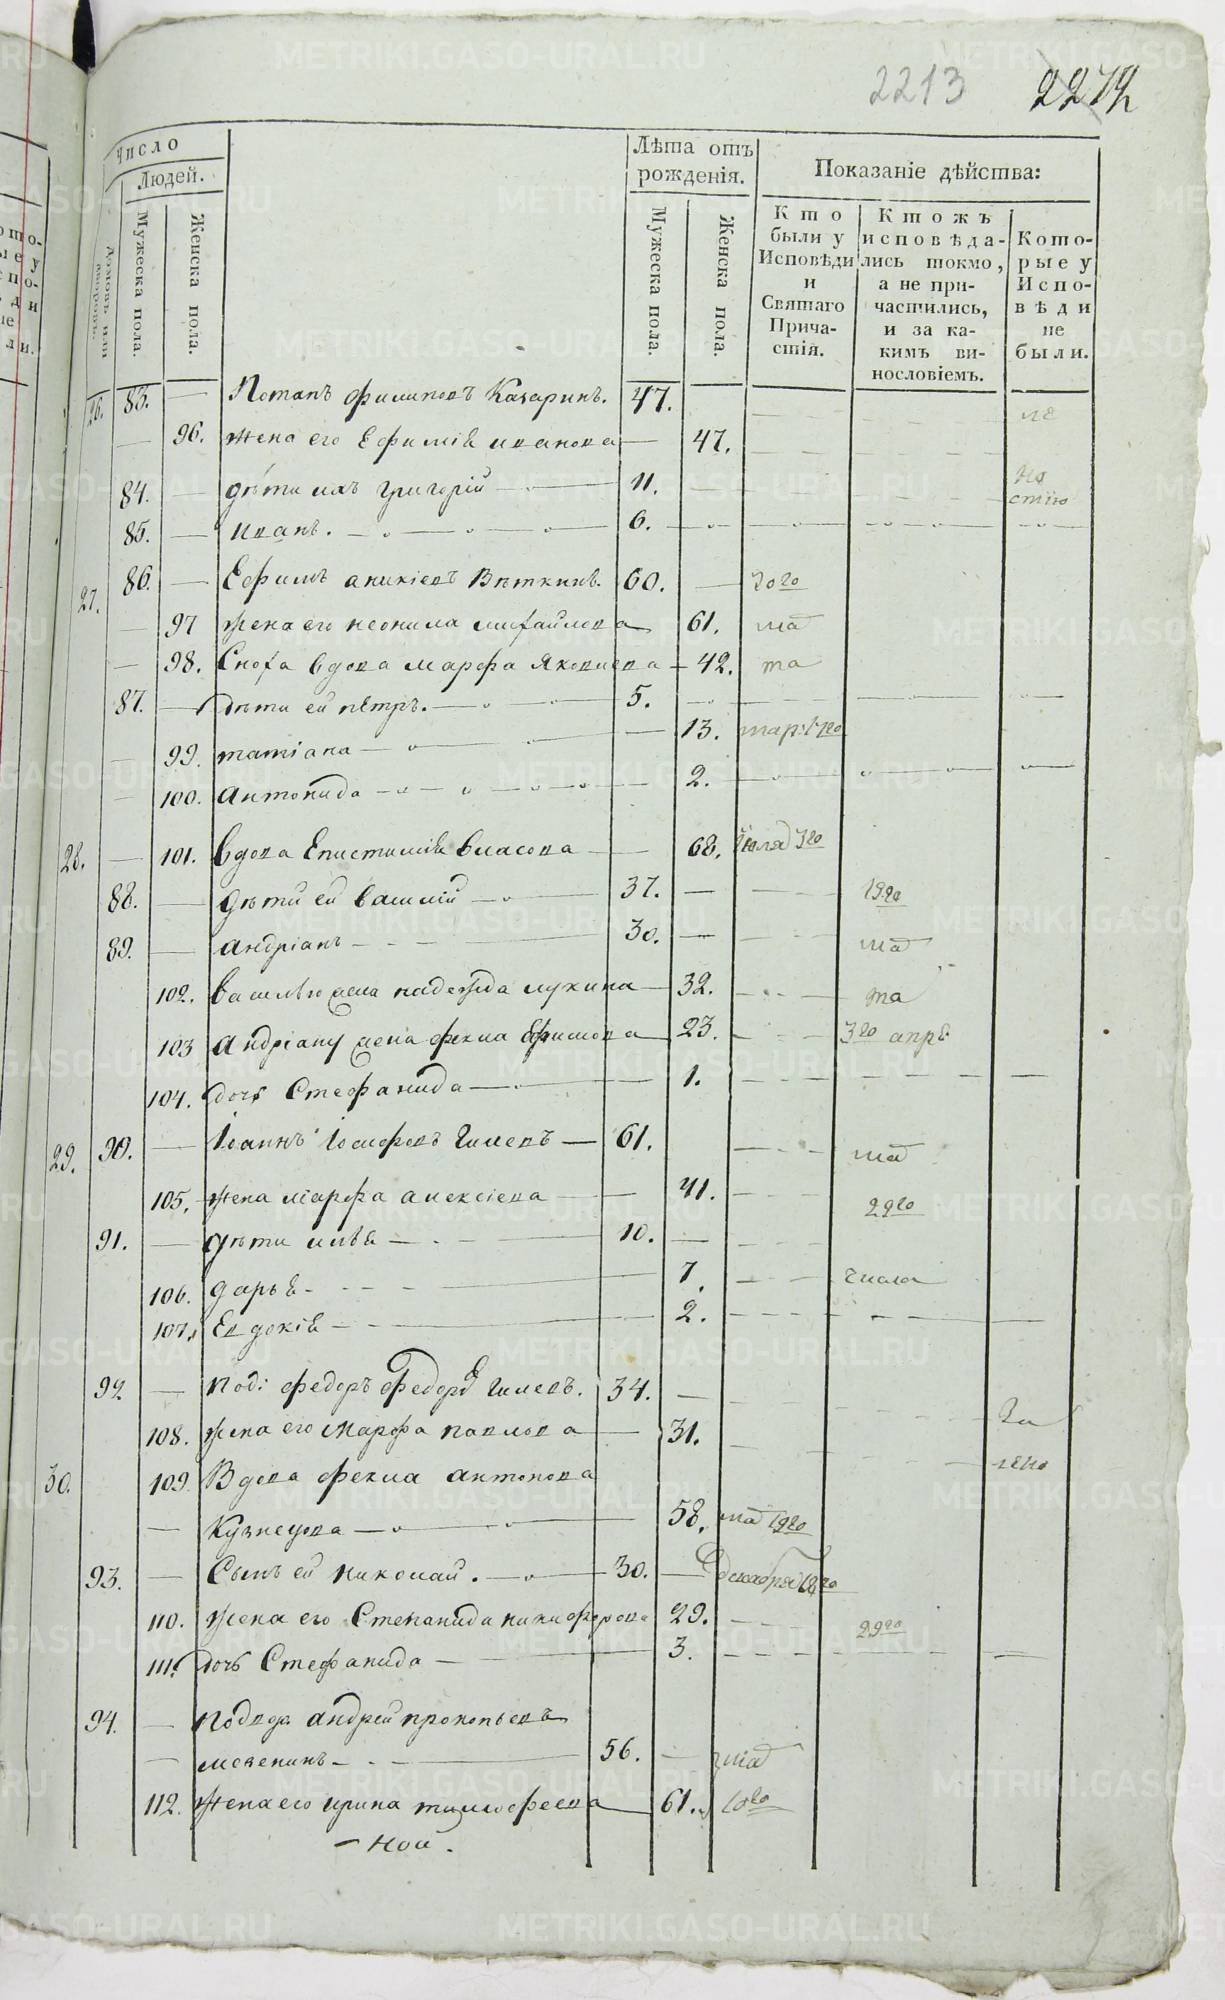 METRIKI.GASO-URAL.RU
2213
2272
Число
Людей.
Дворовъ или
Мужеска пола.
Женска пола.
Лѣта отъ
рожденія.
Мужеска пола.
Женска пола.
Показаніе дѣйства:
Кто
были у
Исповѣди
и
Святаго
Прича-
стія.
Ктожъ
исповѣда-
лись токмо,
а не при-
частились,
и за ка-
кимъ ви-
нословіемъ.
Кото-
рые у
Испо-
вѣди
не
были.
26. 83. — Потапъ Филиповъ Казаринъ. 47.
— 96. жена его Ефимія иванова — 47.
84. — дѣти ихъ григорій — 11.
85. — иванъ. — 6.
27. 86. — Ефимъ аникіевъ Вяткинъ. 60. —
— 97 жена его неонила михайлова 61. маія
— 98. Сноха вдова марфа Яковлева — 42. та
87. — дѣти ей пётръ. — 5.
— 99. татіана — 13.
— 100. антонида — 2.
28. — 101. вдова Епистимія власова — 68. Июля 3го
88. — дѣти ей василій — 37. — 19го
89. — андріанъ — 30. — маія
102. василью жена надежда лукина — 32. та
103 андріану жена фекла Ефимова 23. 3го апрѣ
104. дочь Стефанида — 1.
29. 90. — Іоаннъ Іосифовъ Гилевъ — 61. маія
105. жена марфа алексіева — 41. 29го
91. — дѣти илья — 10.
106. дарья — 7. числа
107. Евдокія — 2.
92 — под: федоръ федоровъ Гилевъ. 34. —
108. жена его марфа павлова — 31.
30. 109. Вдова фекла антонова
— Кузнецова — 58. маія 19го
93. — Сынъ ей николай. — 30. — декабря
110. жена его Степанида никифорова 29. 29го
111. дочь Стефанида — 3.
94. — андрей прокопьевъ
— 56. — маія
112. жена его ирина тимофеева 61. 10го
— ной.